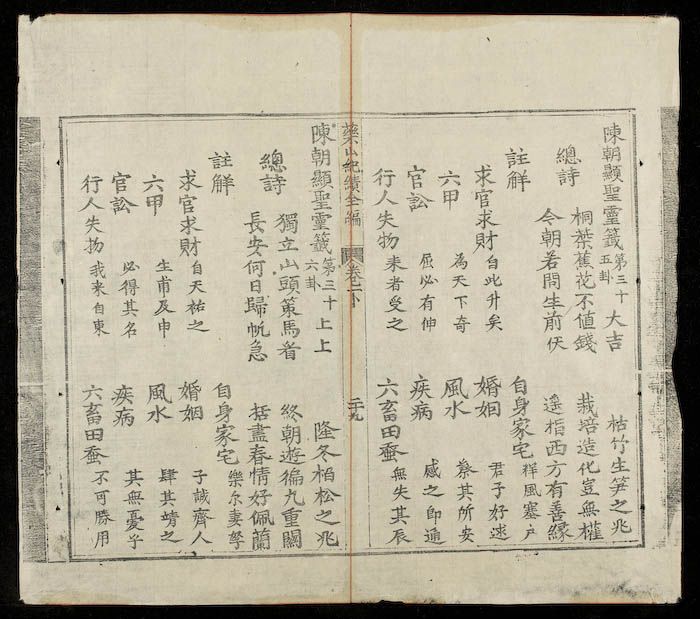 陳朝顯聖靈籤第三十五卦 大吉 枯竹生笋之兆
總詩 桐葉蕉花不值錢 栽培造化豈無權
今朝若問生前伏 遥指西方有善縁
註解 自身家宅 祥風塞戸
求官求財 自此升矣 婚姻 君子好逑
六甲 為天下奇 風水 蔡其所安
官訟 屈必有伸 疾病 感之即通
行人失物 来者受之 六畜田蚕 無失其辰
藥山紀績全編 卷一下 二十九
陳朝顯聖靈籤第三十六卦 上上 隆冬栢松之兆
總詩 獨立山頭策馬看 終朝遊徧九重關
長安何日歸帆急 括盡春情好佩蘭
註解 自身家宅 樂尔妻孥
求官求財 自天祐之 婚姻 子誠齊人
六甲 生甫及申 風水 肆其靖之
官訟 必得其名 疾病 其無憂乎
行人失物 我来自東 六畜田蚕 不可勝用